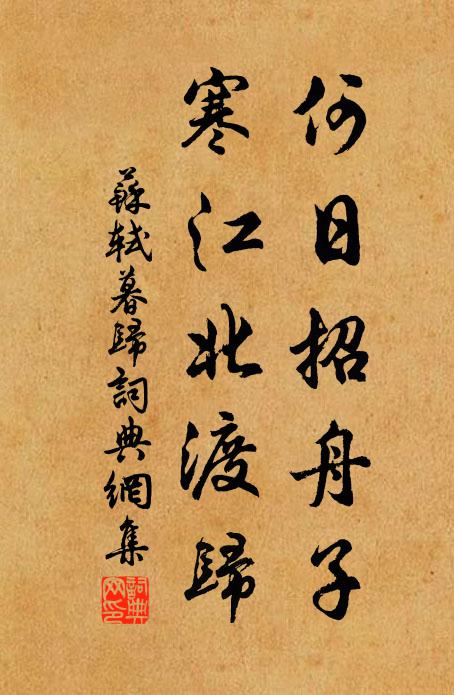 何日招舟子
寒江北渡歸
蘇軾暮歸詞典網集
詞典網印